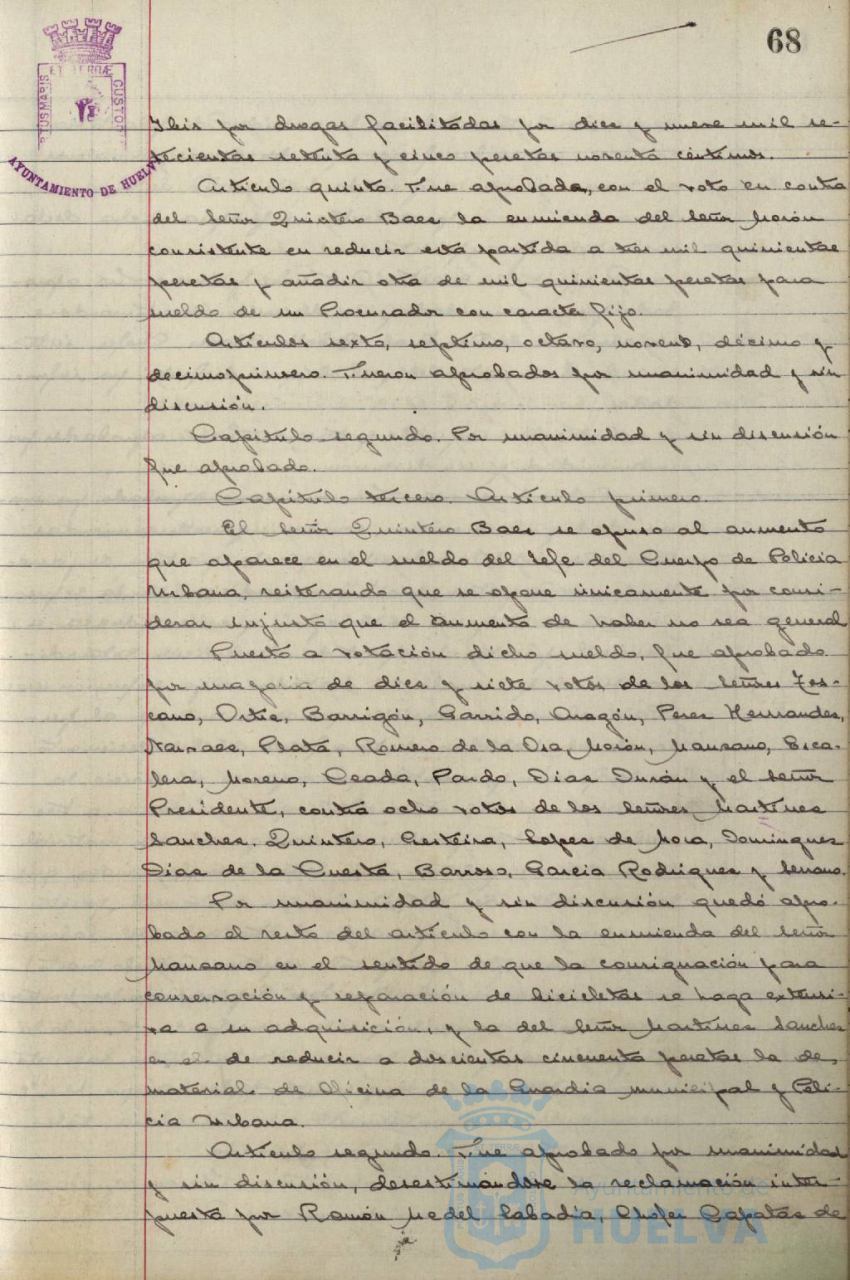 68
PORTUS MARIS ET TERRÆ CUSTODIA
AYUNTAMIENTO DE HUELVA
Ibis por drogas facilitadas por diez y nueve mil se-
tecientas setenta y cinco pesetas noventa céntimos.
Artículo quinto. Fue aprobada, con el voto en contra
del Señor Quintero Baez la enmienda del Señor Morón
consistente en reducir esta partida a tres mil quinientas
pesetas y añadir otra de mil quinientas pesetas para
sueldo de un Procurador con caracter fijo.
Artículos sexto, septimo, octavo, noveno, décimo y
decimoprimero. Fueron aprobados por unanimidad y sin
discusión.
Capítulo segundo. Por unanimidad y sin discusión
fue aprobado.
Capítulo tercero. Artículo primero.
El Señor Quintero Baez se opuso al aumento
que aparece en el sueldo del Jefe del Cuerpo de Policia
Urbana, reiterando que se opone únicamente por consi-
derar injusto que el aumento de haber no sea general
Puesto a votación dicho sueldo, fue aprobado
por mayoria de diez y siete votos de los Señores Tos-
cano, Ortiz, Barrigón, Garrido, Aragón, Perez Hernandez,
Narvaez, Plata, Romero de la Osa, Morón, Manzano, Esca-
lera, Moreno, Ceada, Pardo, Diaz Durán y el Señor
Presidente, contra ocho votos de los Señores Martinez
Sanchez, Quintero, Cresteira, Lopez de Mora, Dominguez
Diaz de la Cuesta, Barroso, Garcia Rodriguez y Serrano.
Por unanimidad y sin discusión quedó apro-
bado el resto del artículo con la enmienda del Señor
Manzano en el sentido de que la consignación para
conservación y reparación de bicicletas se haga extensi-
va a su adquisición, y la del Señor Martinez Sanchez
en el de reducir a doscientas cincuenta pesetas la de
material de Oficina de la Guardia municipal y Poli-
cia Urbana.
Artículo segundo. Fue aprobado por unanimidad
y sin discusión, desestimándose la reclamación inter-
puesta por Ramón Medel Sabadía, Chofer Capataz de
Ayuntamiento de
HUELVA